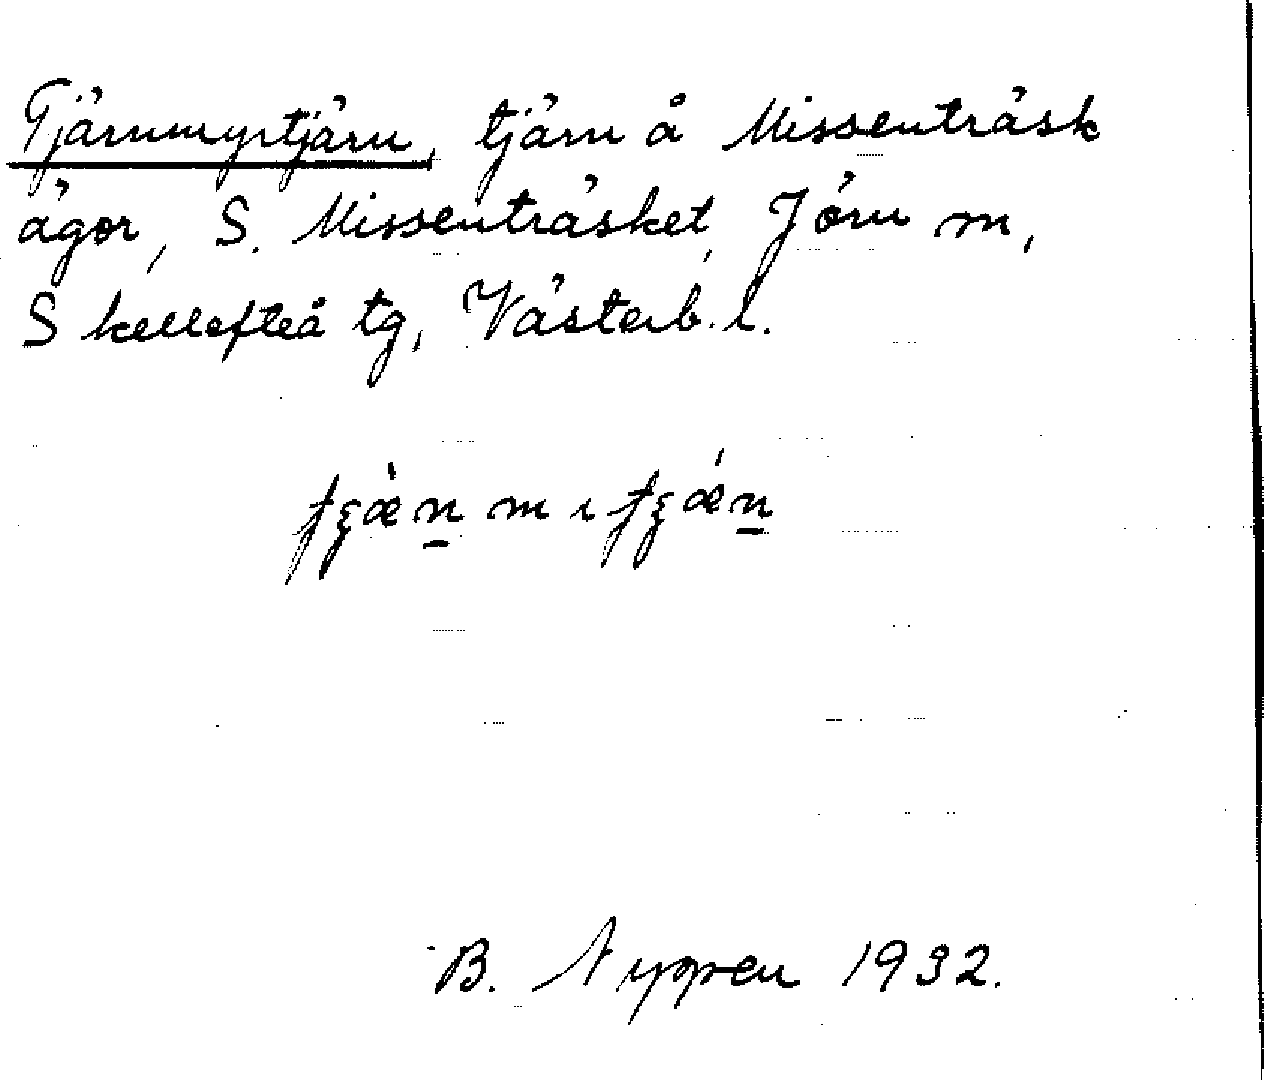 Tjärnmyrtjärn, tjärn å Missenträsk
ägor, S. Missenträsket, Jörn m,
Skellefteå tg, Västerb. l.
B. Nygren 1932.